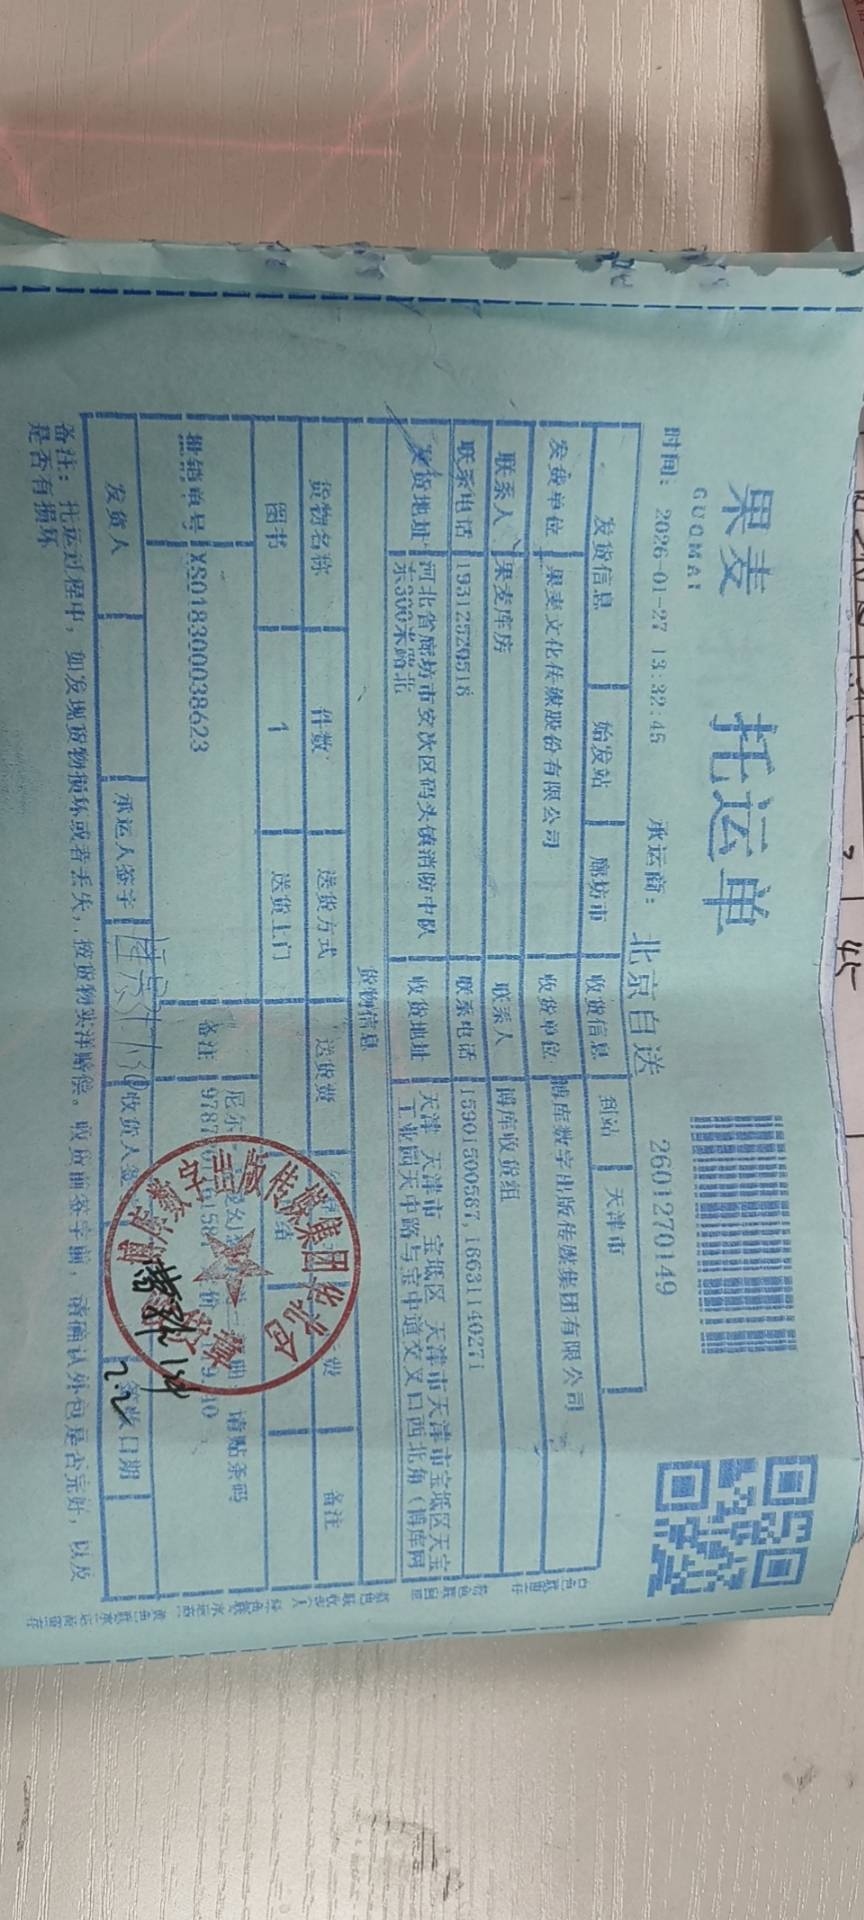 果麦 托运单
GUOMAI
时间: 2026-01-27 13:32:45 承运商: 北京自送 2601270149
发货信息 始发站 廊坊市 收货信息 到站 天津市
发货单位 果麦文化传媒股份有限公司 收货单位 博库数字出版传媒集团有限公司
联系人 果麦库房 联系人 博库收货组
联系电话 19312529518 联系电话 15901500567,18631140271
发货地址 河北省廊坊市安次区码头镇消防中队东300米路北 收货地址 天津 天津市 宝坻区 天津市天津市宝坻区天宝工业园天中路与宝中道交叉口西北角(博库网
货物信息
货物名称 件数 送货方式 送货费 备注
图书 1 送货上门
批销单号 XS018300038623 备注 请贴条码
发货人 承运人签字 收货人签 签收日期
2.2
备注: 托运过程中, 如发现货物损坏或者丢失, 按货物实洋赔偿。收货前签字前, 请确认外包是否完好, 以及
是否有损坏
45